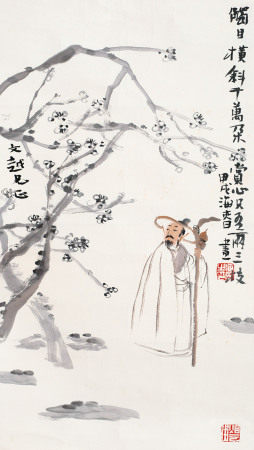 觸目橫斜千萬朵
賞心只有兩三枝
甲戌海春畫
文越兄正